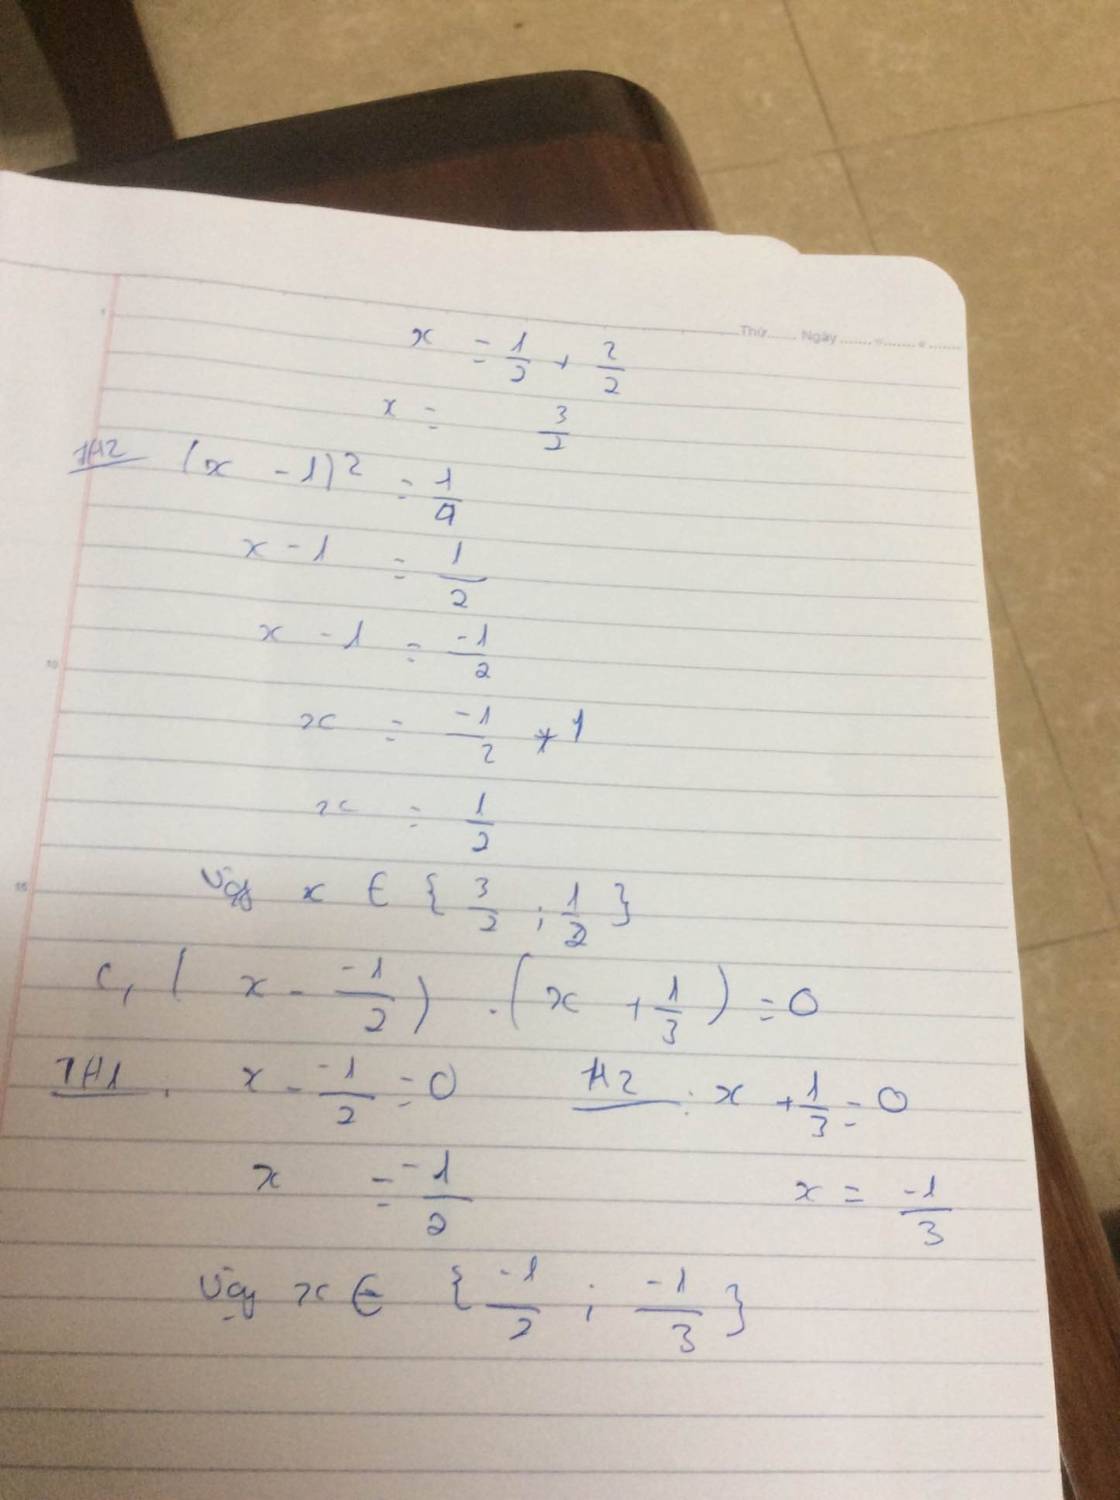 Thứ...... Ngày ......
x = 1/2 + 2/2
x = 3/2
TH2 (x - 1)² = 1/4
x - 1 = 1/2
x - 1 = -1/2
x = -1/2 + 1
x = 1/2
Vậy x ∈ { 3/2 ; 1/2 }
c, ( x - -1/2 ) . ( x + 1/3 ) = 0
TH1 . x - -1/2 = 0 TH2 : x + 1/3 = 0
x = -1/2 x = -1/3
Vậy x ∈ { -1/2 ; -1/3 }